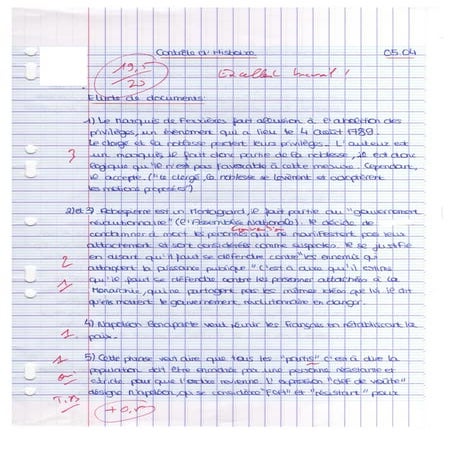 Contrôle d'Histoire 05.04
19,5
20
Excellent travail !
Etude de documents:
1) Le Marquis de Ferrières fait allusion à l'abolition des
privilèges, un évènement qui a lieu le 4 août 1789.
Le clergé et la noblesse perdent leurs privilèges. L'auteur est
un marquis, il fait donc partie de la noblesse, il est donc
logique qu'il n'est pas favorable à cette mesure. Cependant,
3
il accepte. ("Le clergé, la noblesse se levèrent et adoptèrent
les motions proposées")
2) et 3) Robespierre est un Montagnard, il fait partie du "gouvernement
révolutionnaire" (l'Assemblée Nationale). Il décide de
Convention
condamner à mort les personnes qui ne manifestent pas leur
attachement et sont considérées comme suspectes. Il se justifie
en disant qu'il faut se défendre contre "les ennemis qui
2
attaquent la puissance publique" c'est à dire qu'il estime
1
qu'il faut se défendre contre les personnes attachées à la
Monarchie, qui ne partagent pas les mêmes idées que lui. Il dit
qu'ils mettent le gouvernement révolutionnaire en danger.
4) Napoléon Bonaparte veut réunir les Français en rétablissant la
1
paix.
1
5) Cette phrase veut dire que tous les "partis" c'est à dire la
population doit être encadrée par une personne résistante et
stricte pour que l'ordre revienne. L'expression "clef de voûte"
T.B
désigne Napoléon, qui se considère "fort" et "résistant" pour
+0,5